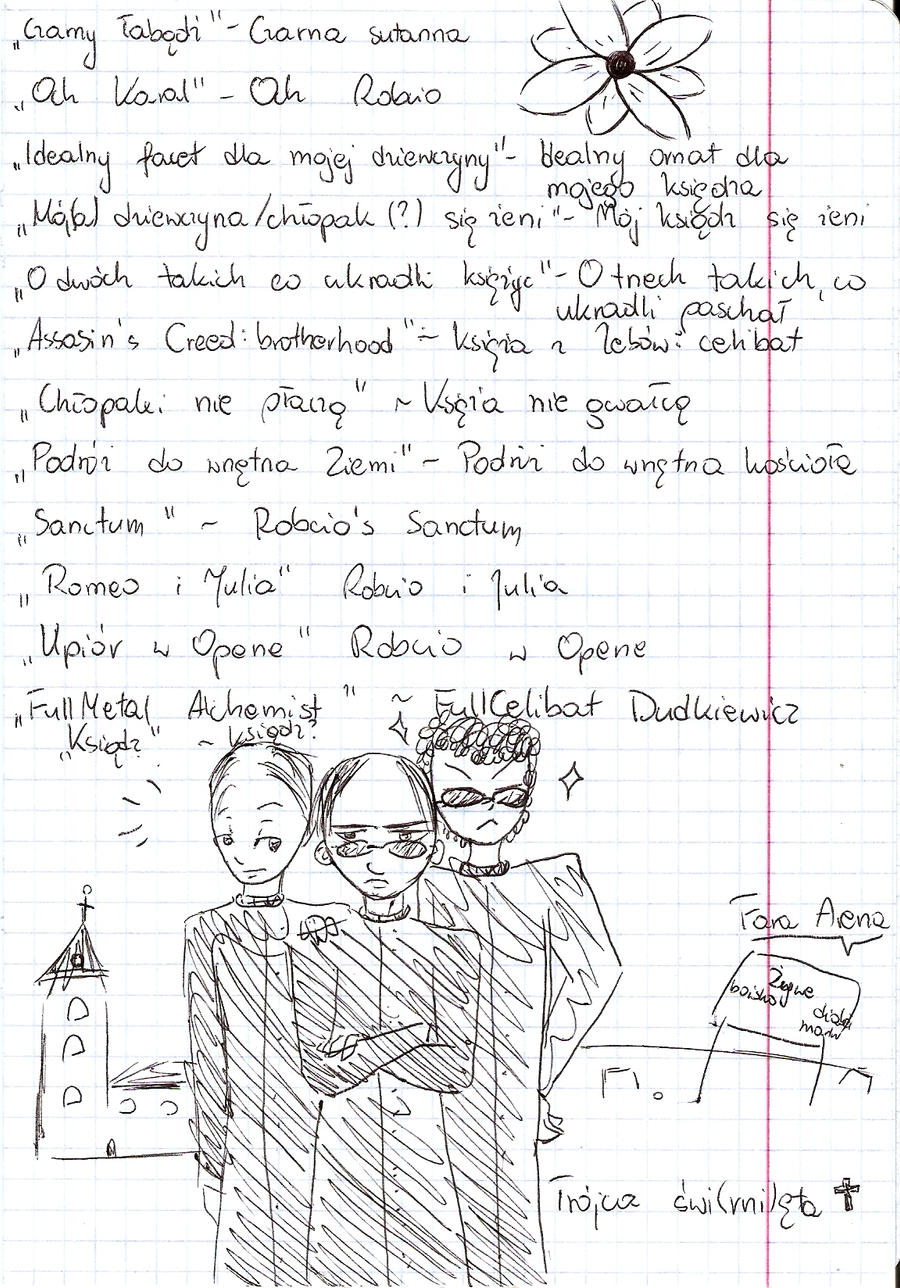 „Czarny Łabędź" - Czarna sutanna
„Och Karol" - Och Robcio
„Idealny facet dla mojej dziewczyny" - Idealny ornat dla
mojego księdza
„Mój(a) dziewczyna/chłopak (?) się żeni" - Mój ksiądz się żeni
„O dwóch takich co ukradli księżyc" - O trzech takich, co
ukradli paschał
„Assasin's Creed: brotherhood" ~ księża z Zębów: celibat
„Chłopaki nie płaczą" ~ Księża nie gwałcą
„Podróż do wnętrza Ziemi" - Podróż do wnętrza kościoła
„Sanctum" ~ Robcio's Sanctum
„Romeo i Julia" Robcio i Julia
„Upiór w Operze" Robcio w Operze
„FullMetal Alchemist" ~ FullCelibat Dudkiewicz
„Ksiądz" ~ ksiądz?
Fara Arena
Żywe
boisko
diabła
Trójca świ(rni)ęta